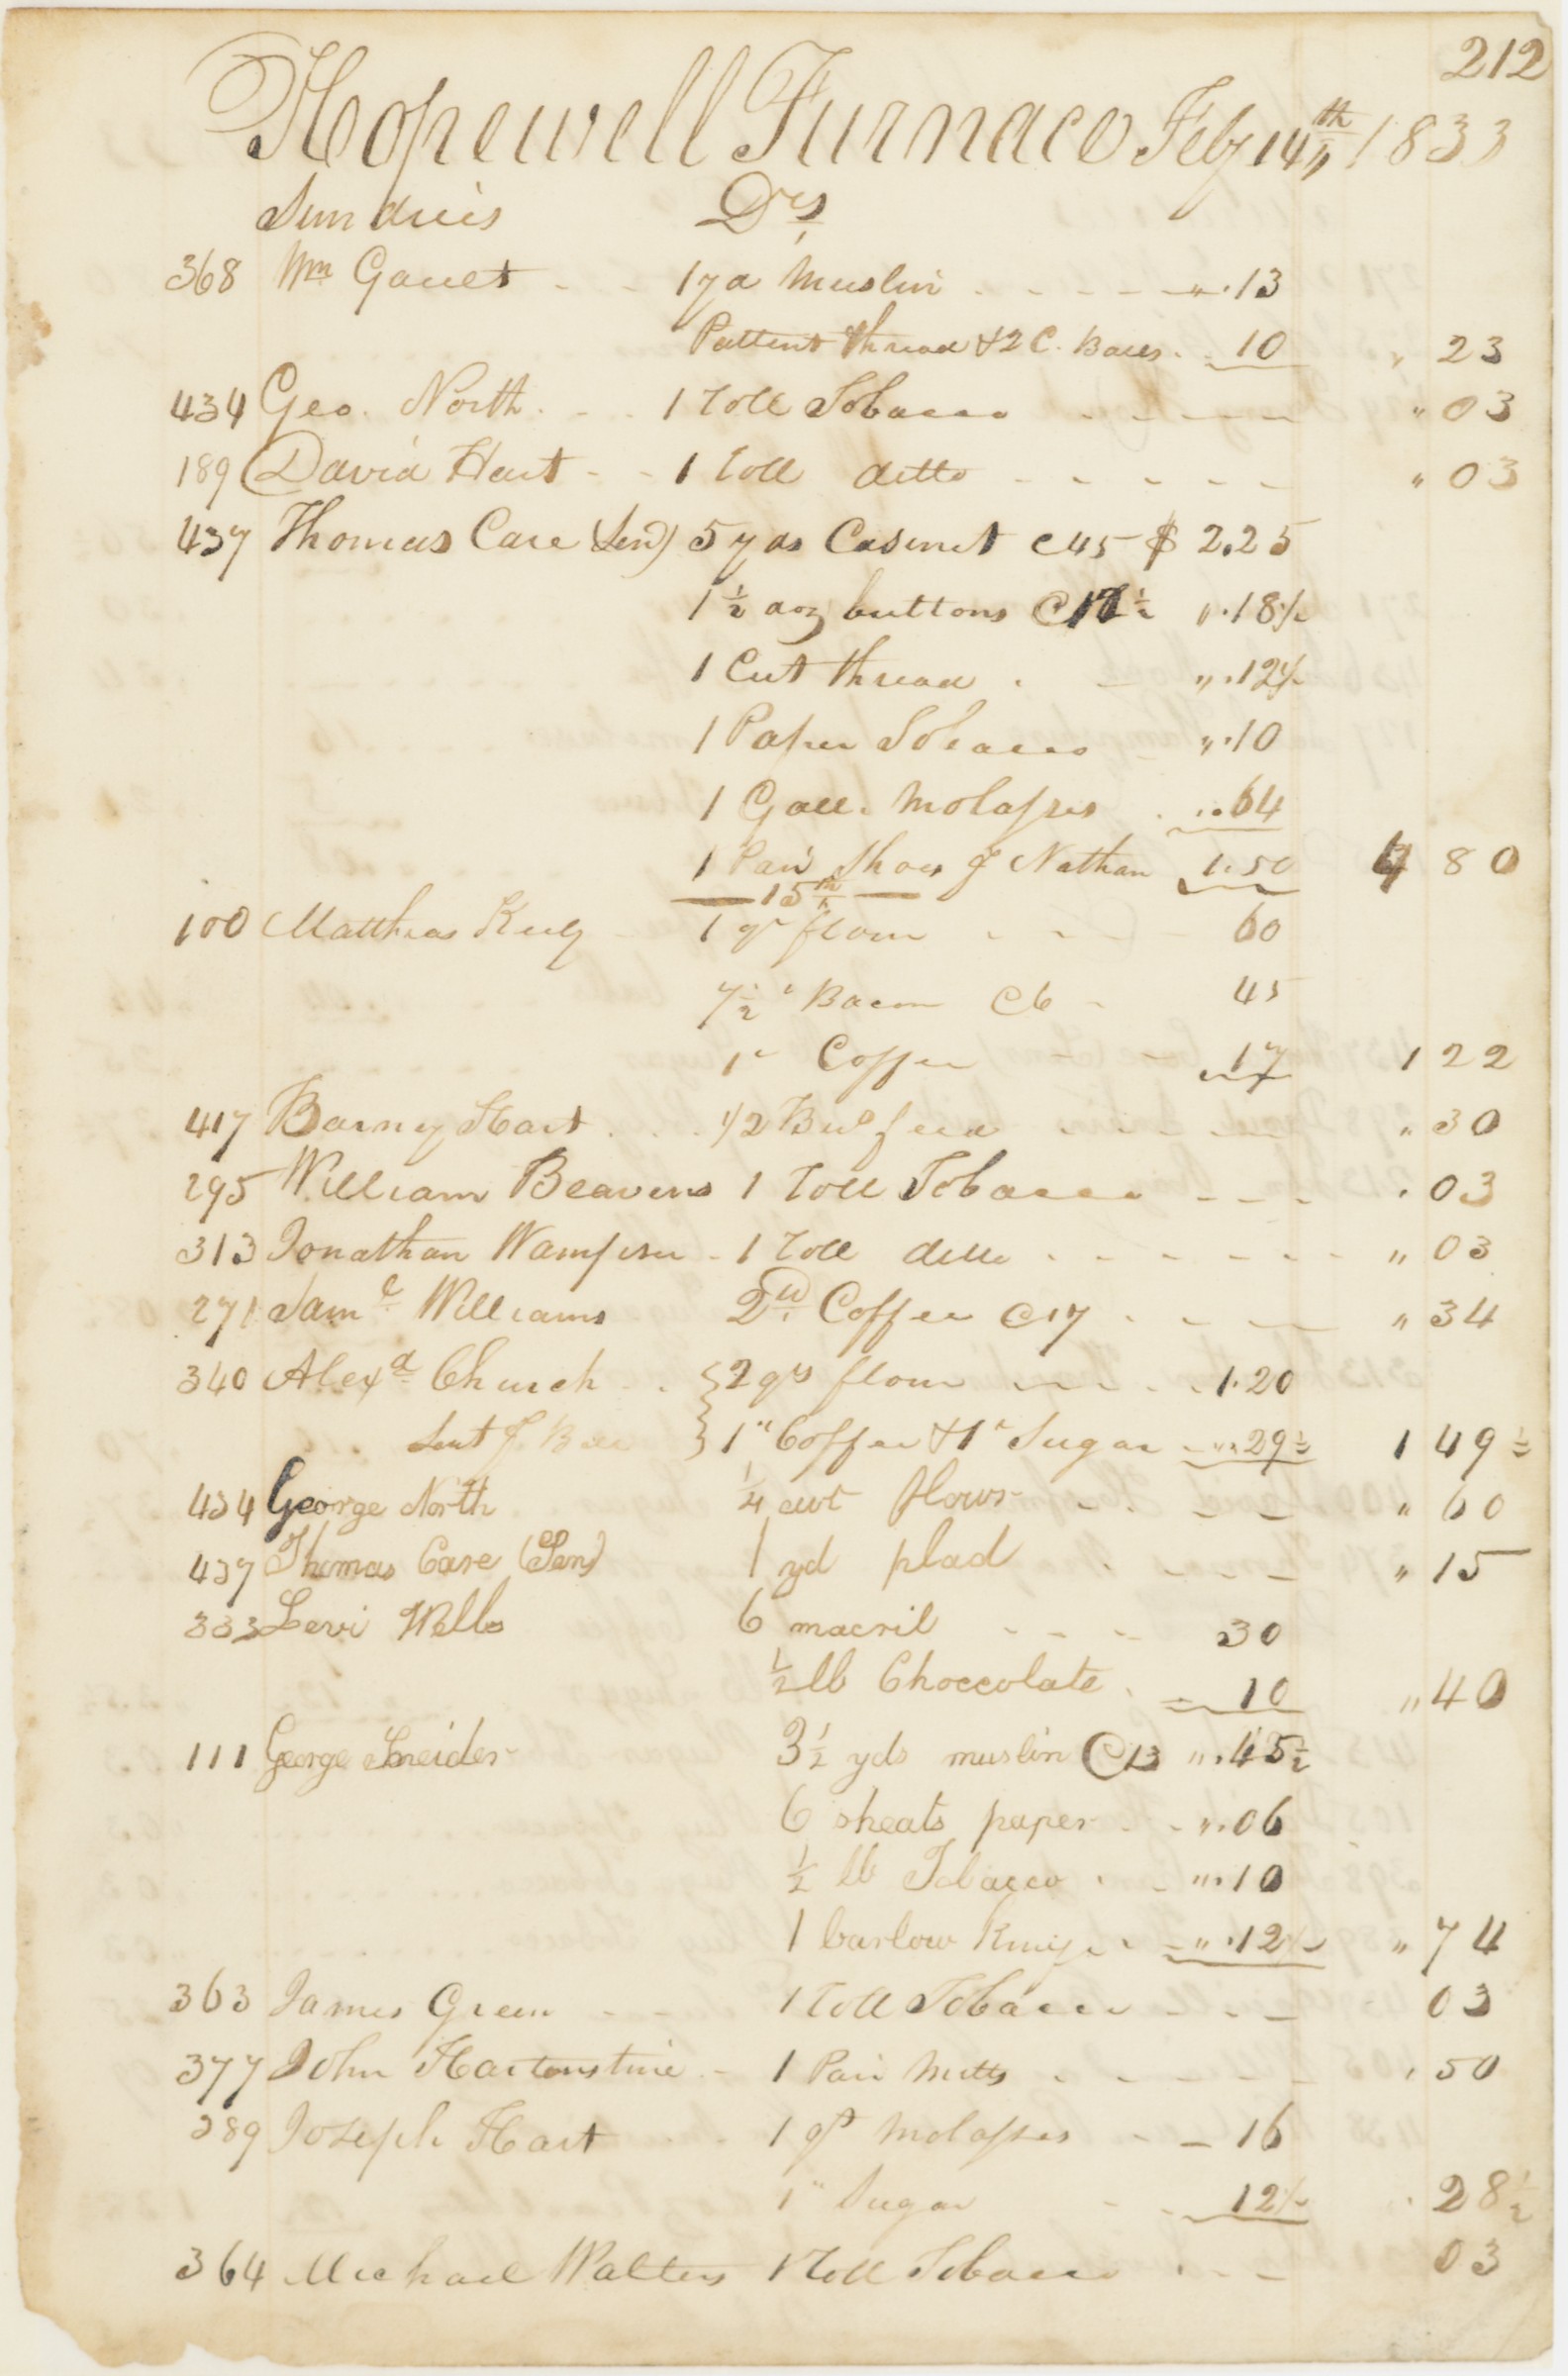 212
Hopewell Furnace Feby 14th 1833
Sundries Drs
368 Wm Gauet 1 yd Muslin ".13
Pattent thread & 2 C. Boxes 10 " 23
434 Geo. North 1 roll Tobacco " 03
189 David Hart 1 roll ditto " 03
437 Thomas Care (Sen) 5 yds Casinet @45 $ 2.25
1 1/2 doz buttons @12 1/2 ".18 1/2
1 Cut thread ".12 1/2
1 Paper Tobacco ".10
1 Gall. Molasses ".64
1 Pair Shoes p Nathan 1.50 4 80
15th
100 Matthias 1 qr flour 60
7 1/2 " Bacon @6 45
1 " Coffee 17 1 22
417 Barney Hart 1/2 Bus feed " 30
295 William Beavens 1 roll Tobacco " 03
313 Jonathan Wampser 1 roll ditto " 03
271 Saml Williams 2 lb Coffee @17 " 34
340 Alexd Church 2 qrs flour 1.20
Sent p 1" Coffee & 1" Sugar ".29 1/2 1 49 1/2
434 George North 1/4 cwt flour " 60
437 Thomas Care (Sen) 1 yd plad " 15
333 Levi Wells 6 macril 30
1/2 lb Choccolate 10 " 40
111 George Sneider 3 1/2 yds muslin @13 ".45 1/2
6 sheats paper ".06
1/2 lb Tobacco ".10
1 barlow Knife ".12 1/2 " 74
363 James Green 1 roll Tobacco 03
377 John Hartenstine 1 Pair Mitts " 50
389 Joseph Hart 1 qt Molasses 16
1 " Sugar 12 1/2 " 28 1/2
364 Michael Walters 1 roll Tobacco 03